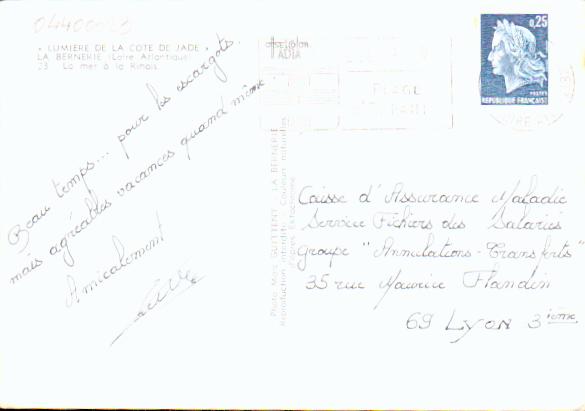 04400023
« LUMIÈRE DE LA COTE DE JADE »
LA BERNERIE (Loire Atlantique)
23 La mer à la Rinais
Beau temps... pour les escargots.
mais agréables vacances quand même.
Amicalement
PLAGE
0,25
POSTES
REPUBLIQUE FRANÇAISE
Photo Marc GUITTENY - LA BERNERIE
Reproduction interdite - Couleurs naturelles
Caisse d'Assurance Maladie
Service Fichiers des Salariés
groupe "Annulations-Transferts"
35 rue Maurice Flandin
69 LYON 3ième